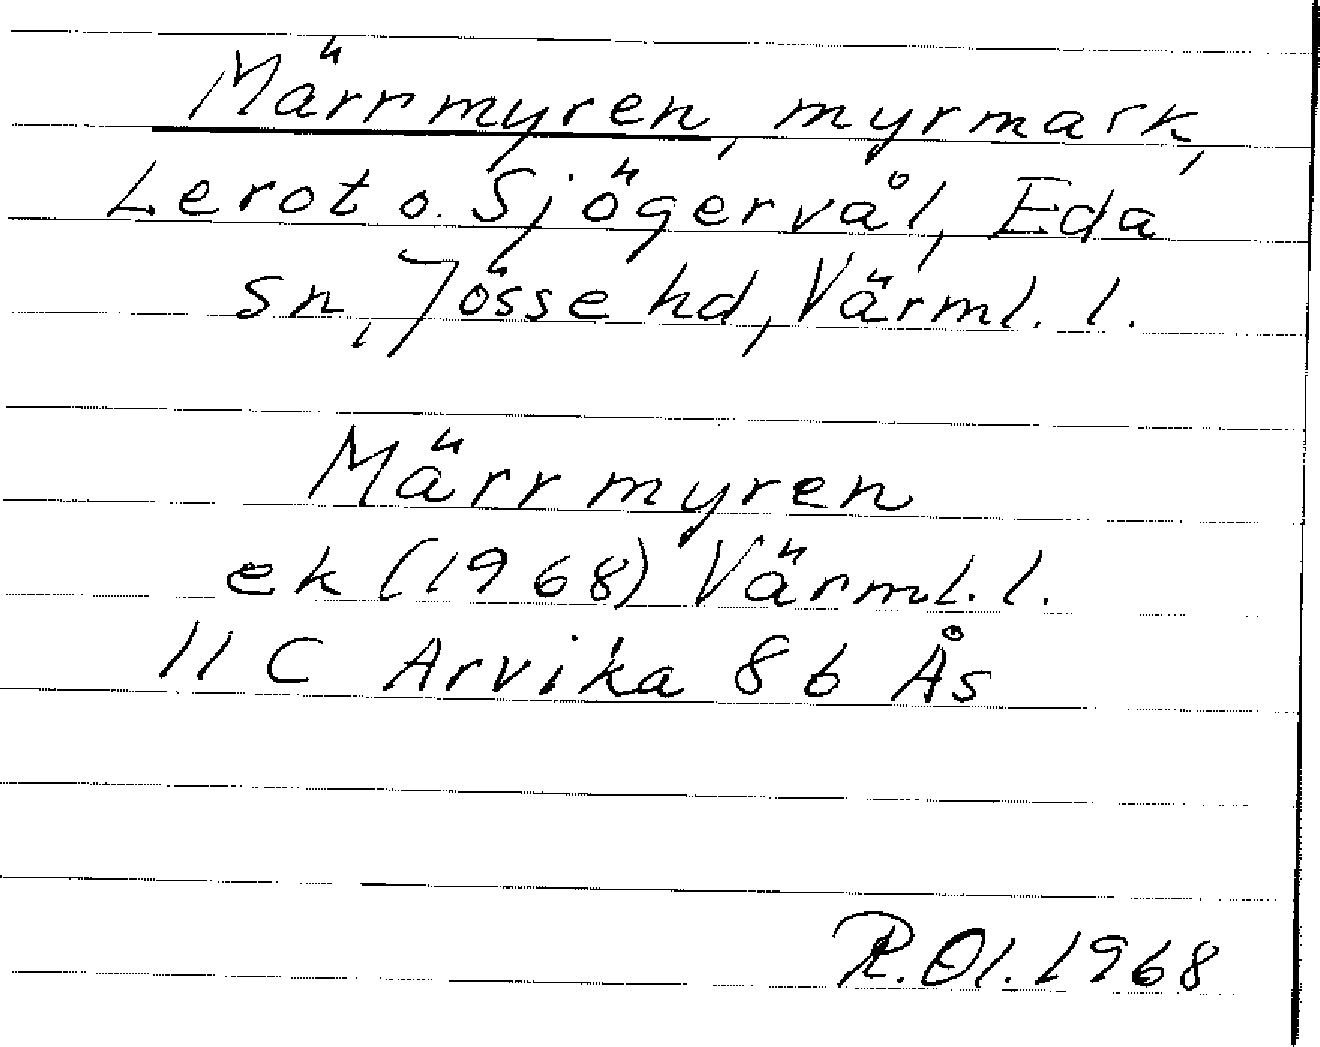 Märrmyren, myrmark,
Lerot o. Sjögervål, Eda
sn, Jösse hd, Värml. l.
Märrmyren
ek (1968) Värml. l.
11 C Arvika 8b Ås
R.Ol. 1968